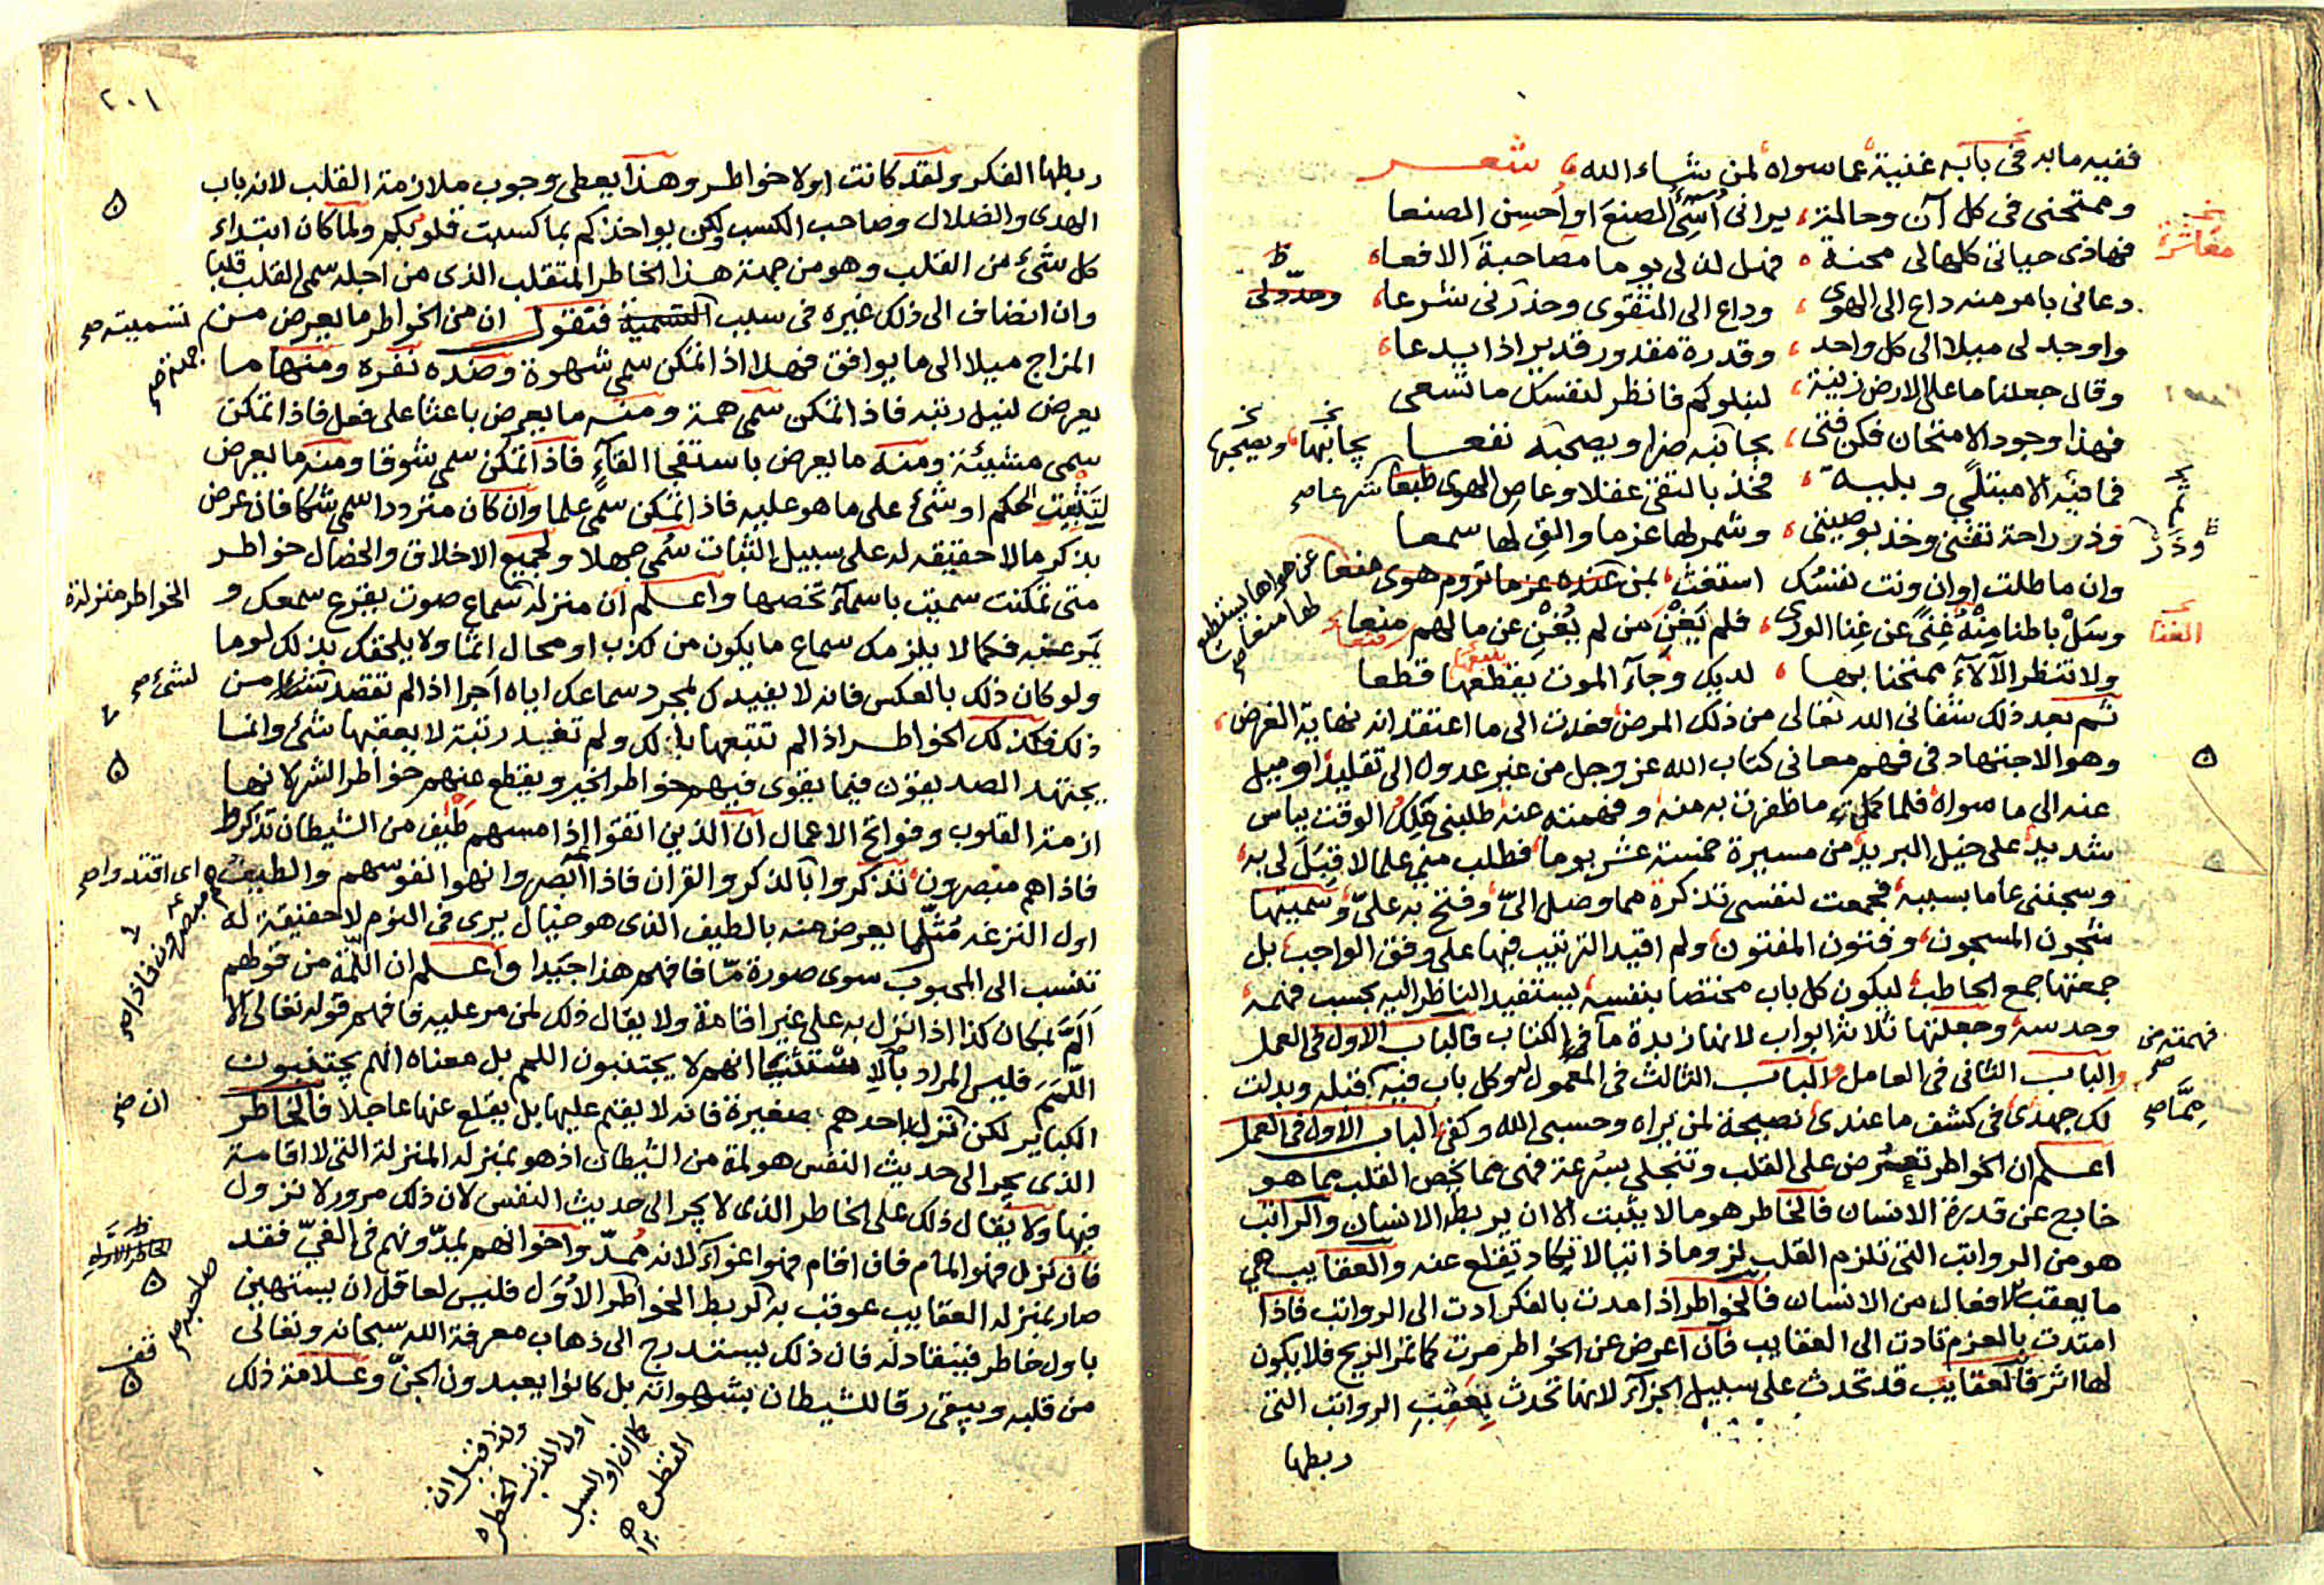 ففيه ما به في بابه غنية عما سواه لمن شاء الله شعر
وممتحني في كل آن وحالة يراني أسيء الصنع او احسن الصنعا
فهاذي حياتي كلها لي محنة فهل لن لي يوما مصاحبة الافعا
دعاني بامر منه داع الى الهوى وداع الى التقوى وحذرني شرعا
واوجد لي ميلا الى كل واحد وقدرة مقدور قدير اذا يدعا
وقال جعلنا ما على الارض زينة لنبلوكم فانظر لنفسك ما تسعى
فهذا وجود الامتحان فكن فتى يجانبه ضرا ويصحبه نفعا
فما فيه الا مبتلى وبلية فخذ بالتقى عقلا وعاص الهوى طبعا
وذر راحة تفنى وخذ بوصيتي وشمر لها عزما والق لها سمعا
وان ماطلت او ان ونت نفسك استغث بمن عنده عزما تروم هوى
وسل باطنا منه غنى عن غنا الورى فلم يغن من لم يغن عن مالهم منعا
ولا تنظر الآلاء ممتحنا بها لديك وجاء الموت يقطعها قطعا
ثم بعد ذلك شفاني الله تعالى من ذلك المرض فعدت الى ما اعتقد انه نهاية الغرض
وهو الاجتهاد في فهم معاني كتاب الله عز وجل من غير عدول الى تقليد او ميل
عنه الى ما سواه فلما كملت ما ظفرت به منه وفهمته عنه طلبني ملك الوقت بباس
شديد على خيل البريد من مسيرة خمسة عشر يوما فطلب مني علما لا قبل لي به
وسجنني عاما بسببه فجمعت لنفسي تذكرة مما وصل الي وفتح به علي وسميتها
شجون المسجون وفتون المفتون ولم اقيد الترتيب فيها على وفق الواجب بل
جمعتها جمع الحاطب ليكون كل باب مختصا بنفسه يستفيد الناظر اليه بحسب فهمه
وحدسه وجعلتها ثلاثة ابواب لانها زبدة ما في الكتاب فالباب الاول في العمل
والباب الثاني في العامل والباب الثالث في المعمول له وكل باب فيه اقبله وبذلت
لك جهدي في كشف ما عندي نصيحة لمن يراه وحسبي الله وكفى الباب الاول في العمل
اعلم ان الخواطر تعرض على القلب وتنجلي بسرعة فهي مما يخص القلب مما هو
خارج عن قدرة الانسان فالخاطر هو ما لا يثبت الا ان يربطه الانسان والراتب
هو من الرواتب التي تلزم القلب لزوما ذاتيا لا يكاد يقلع عنه والعقايب هي
ما يعقب الافعال من الانسان فالخواطر اذا مدت بالفكر ادت الى الرواتب فاذا
امتدت بالعزم تادت الى العقايب فان اعرض عن الخواطر مرت كما تمر الريح فلا يكون
لها اثر فالعقايب قد تحدث على سبيل الجزاء لانها تحدث بعقب الرواتب التي
ربطها
مفاشرة
وحد ولي
بجانبها ويصحبها
وذر
الغنا
فهمته من
٢٠١
ربطها الفكر ولقد كانت اولا خواطر وهذا يعطي وجوب ملازمة القلب لانه باب
الهدى والضلال وصاحب الكسب ولكن يواخذكم بما كسبت قلوبكم ولما كان ابتداء
كل شيء من القلب وهو من جهة هذا الخاطر المتقلب الذي من اجله سمي القلب قلبا
وان انضاف الى ذلك غيره في سبب التسمية فنقول ان من الخواطر ما يعرض من
المزاج ميلا الى ما يوافق فهذا اذا تمكن سمي شهوة وضده نفره ومنها ما
يعرض لنيل رتبه فاذا تمكن سمي همة ومنه ما يعرض باعثا على فعل فاذا تمكن
سمي مشيئة ومنه ما يعرض باستفجا القاء فاذا تمكن سمي شوقا ومنه ما يعرض
لتثبيت الحكم او شيء على ما هو عليه فاذا تمكن سمي علما وان كان مترددا سمي شكا فان عرض
بذكر ما لا حقيقه له على سبيل الثبات سمي جهلا ولجميع الاخلاق والخصال خواطر
متى تمكنت سميت باسماء تخصها واعلم ان منزلة سماع صوت يقرع سمعك و
يمر عنه فكما لا يلزمك سماع ما يكون من كذب او محال اثما ولا يلحقك بذلك لوما
ولو كان ذلك بالعكس فانه لا يفيدك لمجرد سماعك اياه اجرا اذا لم تقصد من
ذلك فكذلك الخواطر اذا لم تتبعها بذلك ولم تفيد رتبة لا يعقبها شيء وانما
يجتهد الصديقون فيما يقوى فيهم خواطر الخير ويقطع عنهم خواطر الشر لانها
ازمة القلوب وفواتح الاعمال ان الذين اتقوا اذا مسهم طيف من الشيطان تذكروا
فاذا هم مبصرون تذكروا بالذكر والقران فاذا ابصروا نهوا نفوسهم والطيف
اول النزغه مثلما يعرض منه بالطيف الذي هو خيال يرى في النوم لا حقيقة له
تنسب الى المحبوب سوى صورة ما فافهم هذا جيدا واعلم ان اللمة من قولهم
الم بمكان كذا اذا نزل به على غير اقامة ولا يقال ذلك لمن مر عليه فافهم قوله تعالى الا
اللمم فليس المراد بالا انهم لا يجتنبون اللمم بل معناه انهم يجتنبون
الكباير لكن نزل باحدهم صغيرة فانه لا يقيم عليها بل يقلع عنها عاجلا فالخاطر
الذي يجر الى حديث النفس هو لمة من الشيطان اذ هو بمنزله المنزلة التي لا اقامة
فيها ولا يقال ذلك على الخاطر الذي لا يجر الى حديث النفس لان ذلك مرور لا نزول
فان نزل فهو المام فان اقام فهو اغواء لانه ممد واخوانهم يمدونهم في الغي فقد
صار بمنزله العقايب عوقب به اكر بط الخواطر الاول فليس لعاقل ان يستهين
باول خاطر فينقاد له فان ذلك يستدرج الى ذهاب معرفة الله سبحانه وتعالى
من قلبه ويبقى رقا للشيطان بشهواته بل كانوا يعبدون الجن وعلامة ذلك
تسميته صح
الخواطر منزلة
لشيء صح
اي اقتدوا صح
مبصرون فاذا صح
ان صح
صاحبه صح
قف
ولذا قيل ان
اول الذنب الخطره
كما ان اول السيل
القطره